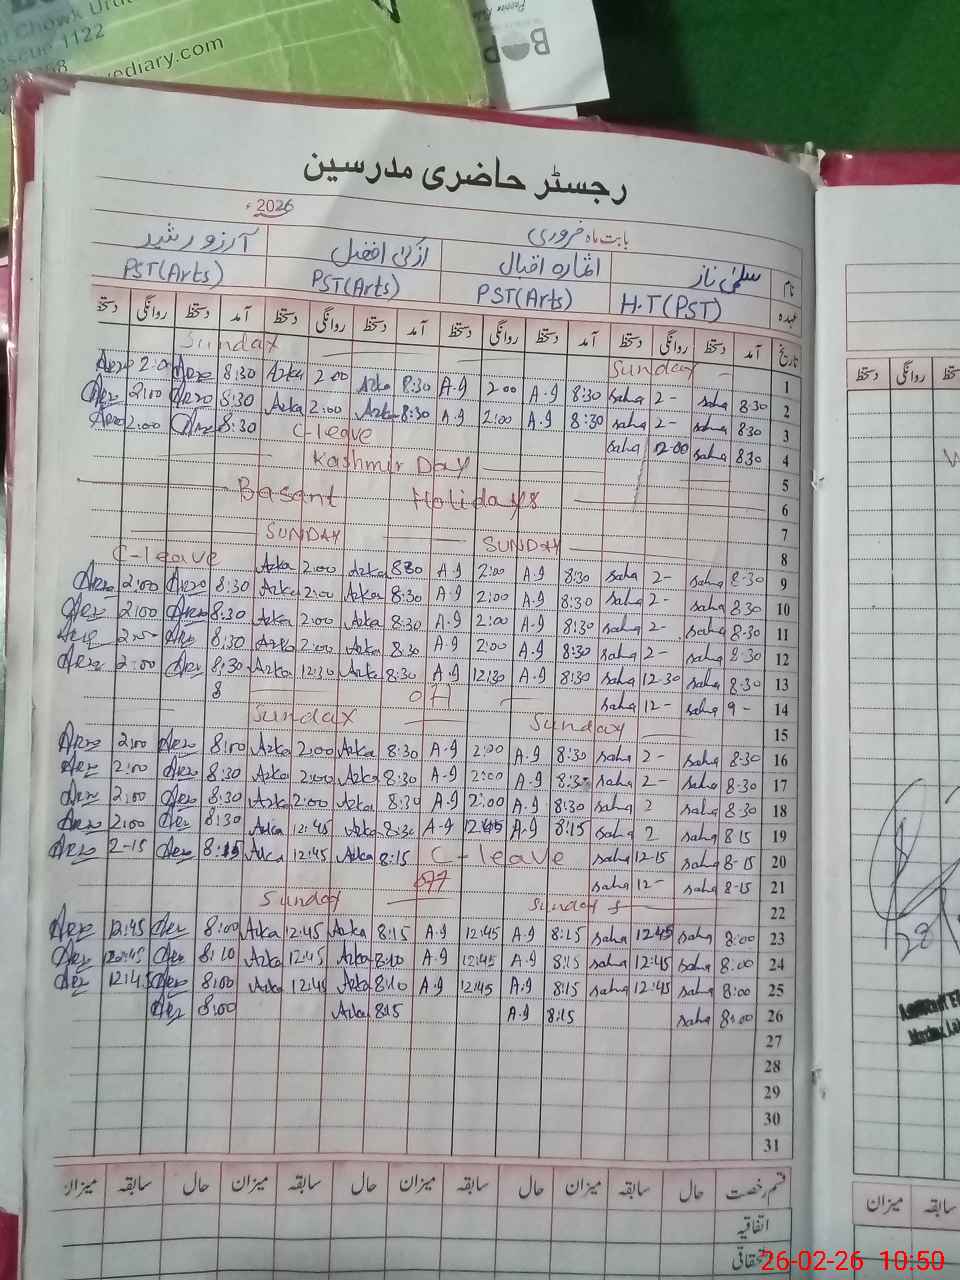 Chowk Urdu
scue 1122
ediary.com
BOP
رجسٹر حاضری مدرسین
2026ء
بابت ماہ فروری
نام سلمیٰ ناز اقبال ازکیٰ افضل آرزو رشید
عہدہ H.T(PST) PST(Arts) PST(Arts) PST(Arts)
تاریخ آمد دستخط روانگی دستخط آمد دستخط روانگی دستخط آمد دستخط روانگی دستخط آمد دستخط روانگی دستخط
1 Sunday Sunday
2 8:30 saha 2- saha 8:30 A.I 2:00 A.I 8:30 Azka 2:00 Azka 8:30 Arzo 2:00
3 8:30 saha 2- saha 8:30 A.I 2:00 A.I 8:30 Azka 2:00 Azka 8:30 2:00
4 8:30 saha 12:00 saha C-leave 8:30 2:00
5 Kashmir Day
6 Basant Holidays
7
8 SUNDAY SUNDAY
9 8:30 saha 2- saha 8:30 A.I 2:00 A.I 8:30 Azka 2:00 Azka C-leave
10 8:30 saha 2- saha 8:30 A.I 2:00 A.I 8:30 Azka 2:00 Azka 8:30 Arzo 2:00
11 8:30 saha 2- saha 8:30 A.I 2:00 A.I 8:30 Azka 2:00 Azka 8:30 2:00
12 8:30 saha 2- saha 8:30 A.I 2:00 A.I 8:30 Azka 2:00 Azka 8:30 2:00
13 8:30 saha 12:30 saha 8:30 A.I 12:30 A.I 8:30 Azka 12:30 Azka 8:30 2:00
14 9- saha 12- saha
15 Sunday Sunday
16 8:30 saha 2- saha 8:30 A.I 2:00 A.I 8:30 Azka 2:00 Azka 8:00 2:00
17 8:30 saha 2- saha 8:30 A.I 2:00 A.I 8:30 Azka 2:00 Azka 8:30 2:00
18 8:30 saha 2 saha 8:30 A.I 2:00 A.I 8:30 Azka 2:00 Azka 8:30 2:00
19 8:15 saha 2 saha 8:15 A.I 12:45 A.I 8:30 Azka 12:45 Azka 8:30 2:00
20 8-15 saha 12-15 saha C-leave 8:15 Azka 12:45 Azka 8:15 2-15
21 8-15 saha 12- saha
22 Sunday Sunday
23 8:00 saha 12:45 saha 8:15 A.I 12:45 A.I 8:15 Azka 12:45 Azka 8:00 12:45
24 8:00 saha 12:45 saha 8:15 A.I 12:45 A.I 8:10 Azka 12:45 Azka 8:10 12:45
25 8:00 saha 12:45 saha 8:15 A.I 12:45 A.I 8:10 Azka 12:45 Azka 8:00 12:45
26 8:00 saha 8:15 A.I 8:15 Azka 8:00
27
28
29
30
31
قسم رخصت حال سابقہ میزان حال سابقہ میزان حال سابقہ میزان حال سابقہ میزان
اتفاقیہ
دستخط روانگی
میزان سابقہ
26-02-26 10:50